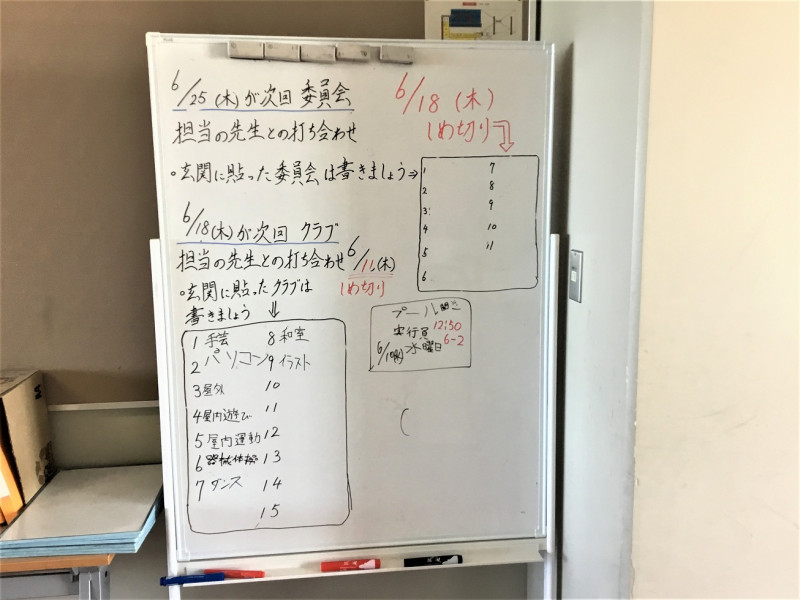 6/25(木)が次回 委員会
担当の先生との打ち合わせ
・玄関に貼った委員会は書きましょう⇒
6/18(木)
しめ切り
1 7
2 8
3 9
4 10
5 11
6
6/18(木)が次回 クラブ
担当の先生との打ち合わせ
・玄関に貼ったクラブは
書きましょう ⇓
6/11(木)
しめ切り
1 手芸 8 和室
2 パソコン 9 イラスト
3 屋外 10
4 屋内遊び 11
5 屋内運動 12
6 器械体操 13
7 ダンス 14
15
プール
実行員 12:50
6-2
水曜日